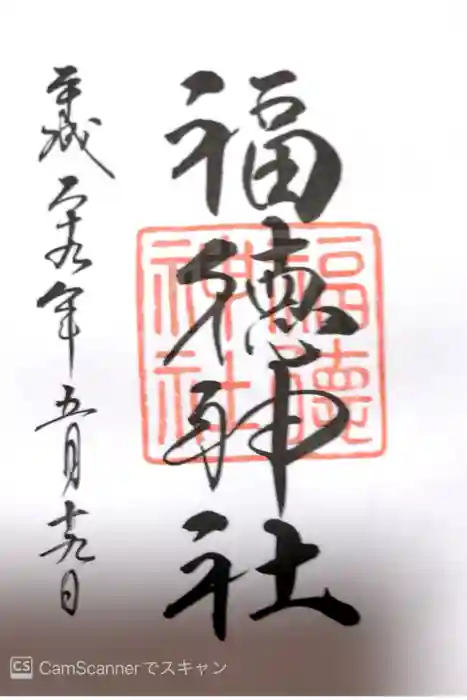 福徳神社
福徳神社
平成二十九年五月十九日
CS CamScannerでスキャン